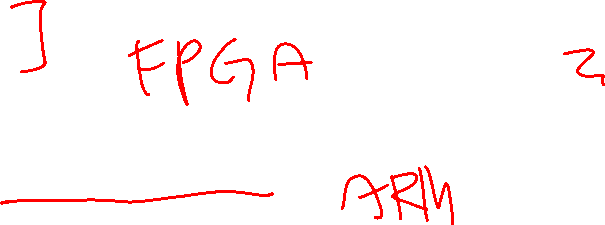 ] FPGA 2
ARM